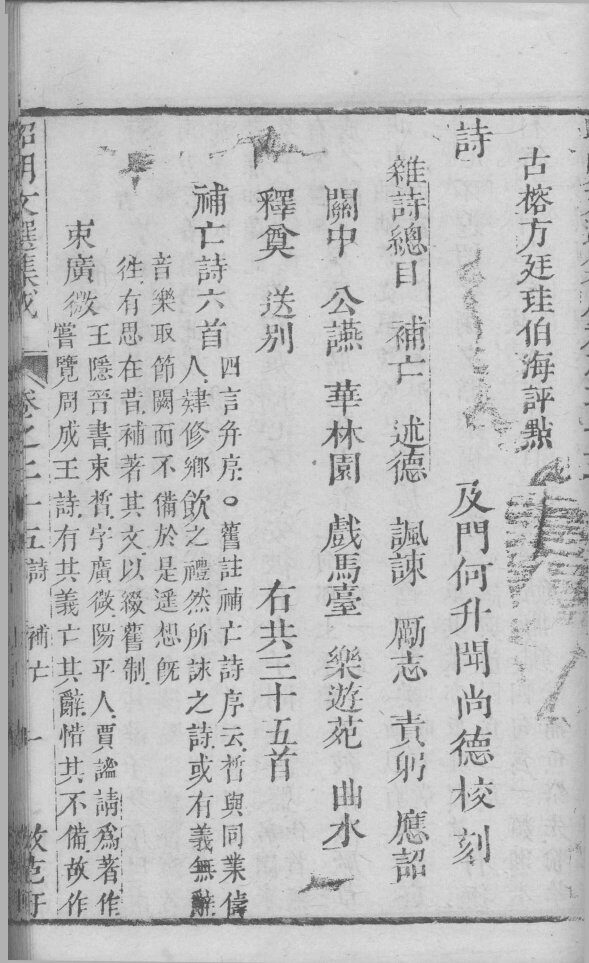 古榕方廷珪伯海評點
及門何升聞尚德校刻
詩
雜詩總目 補亡 述德 諷諫 勵志 責躬 應詔
關中 公讌 華林園 戲馬臺 樂遊苑 曲水
釋奠 送別 右共三十五首
補亡詩六首 四言并序。舊註補亡詩序云晳與同業儔
人肄修鄉飲之禮然所詠之詩或有義無辭
音樂取節闕而不備於是遥想既
徃有思在昔補著其文以綴舊制
束廣微 王隱晉書束晳字廣微陽平人賈謐請爲著作
嘗覽周成王詩有其義亡其辭惜其不備故作
昭明文選集成 卷之二十五 詩 補亡 一